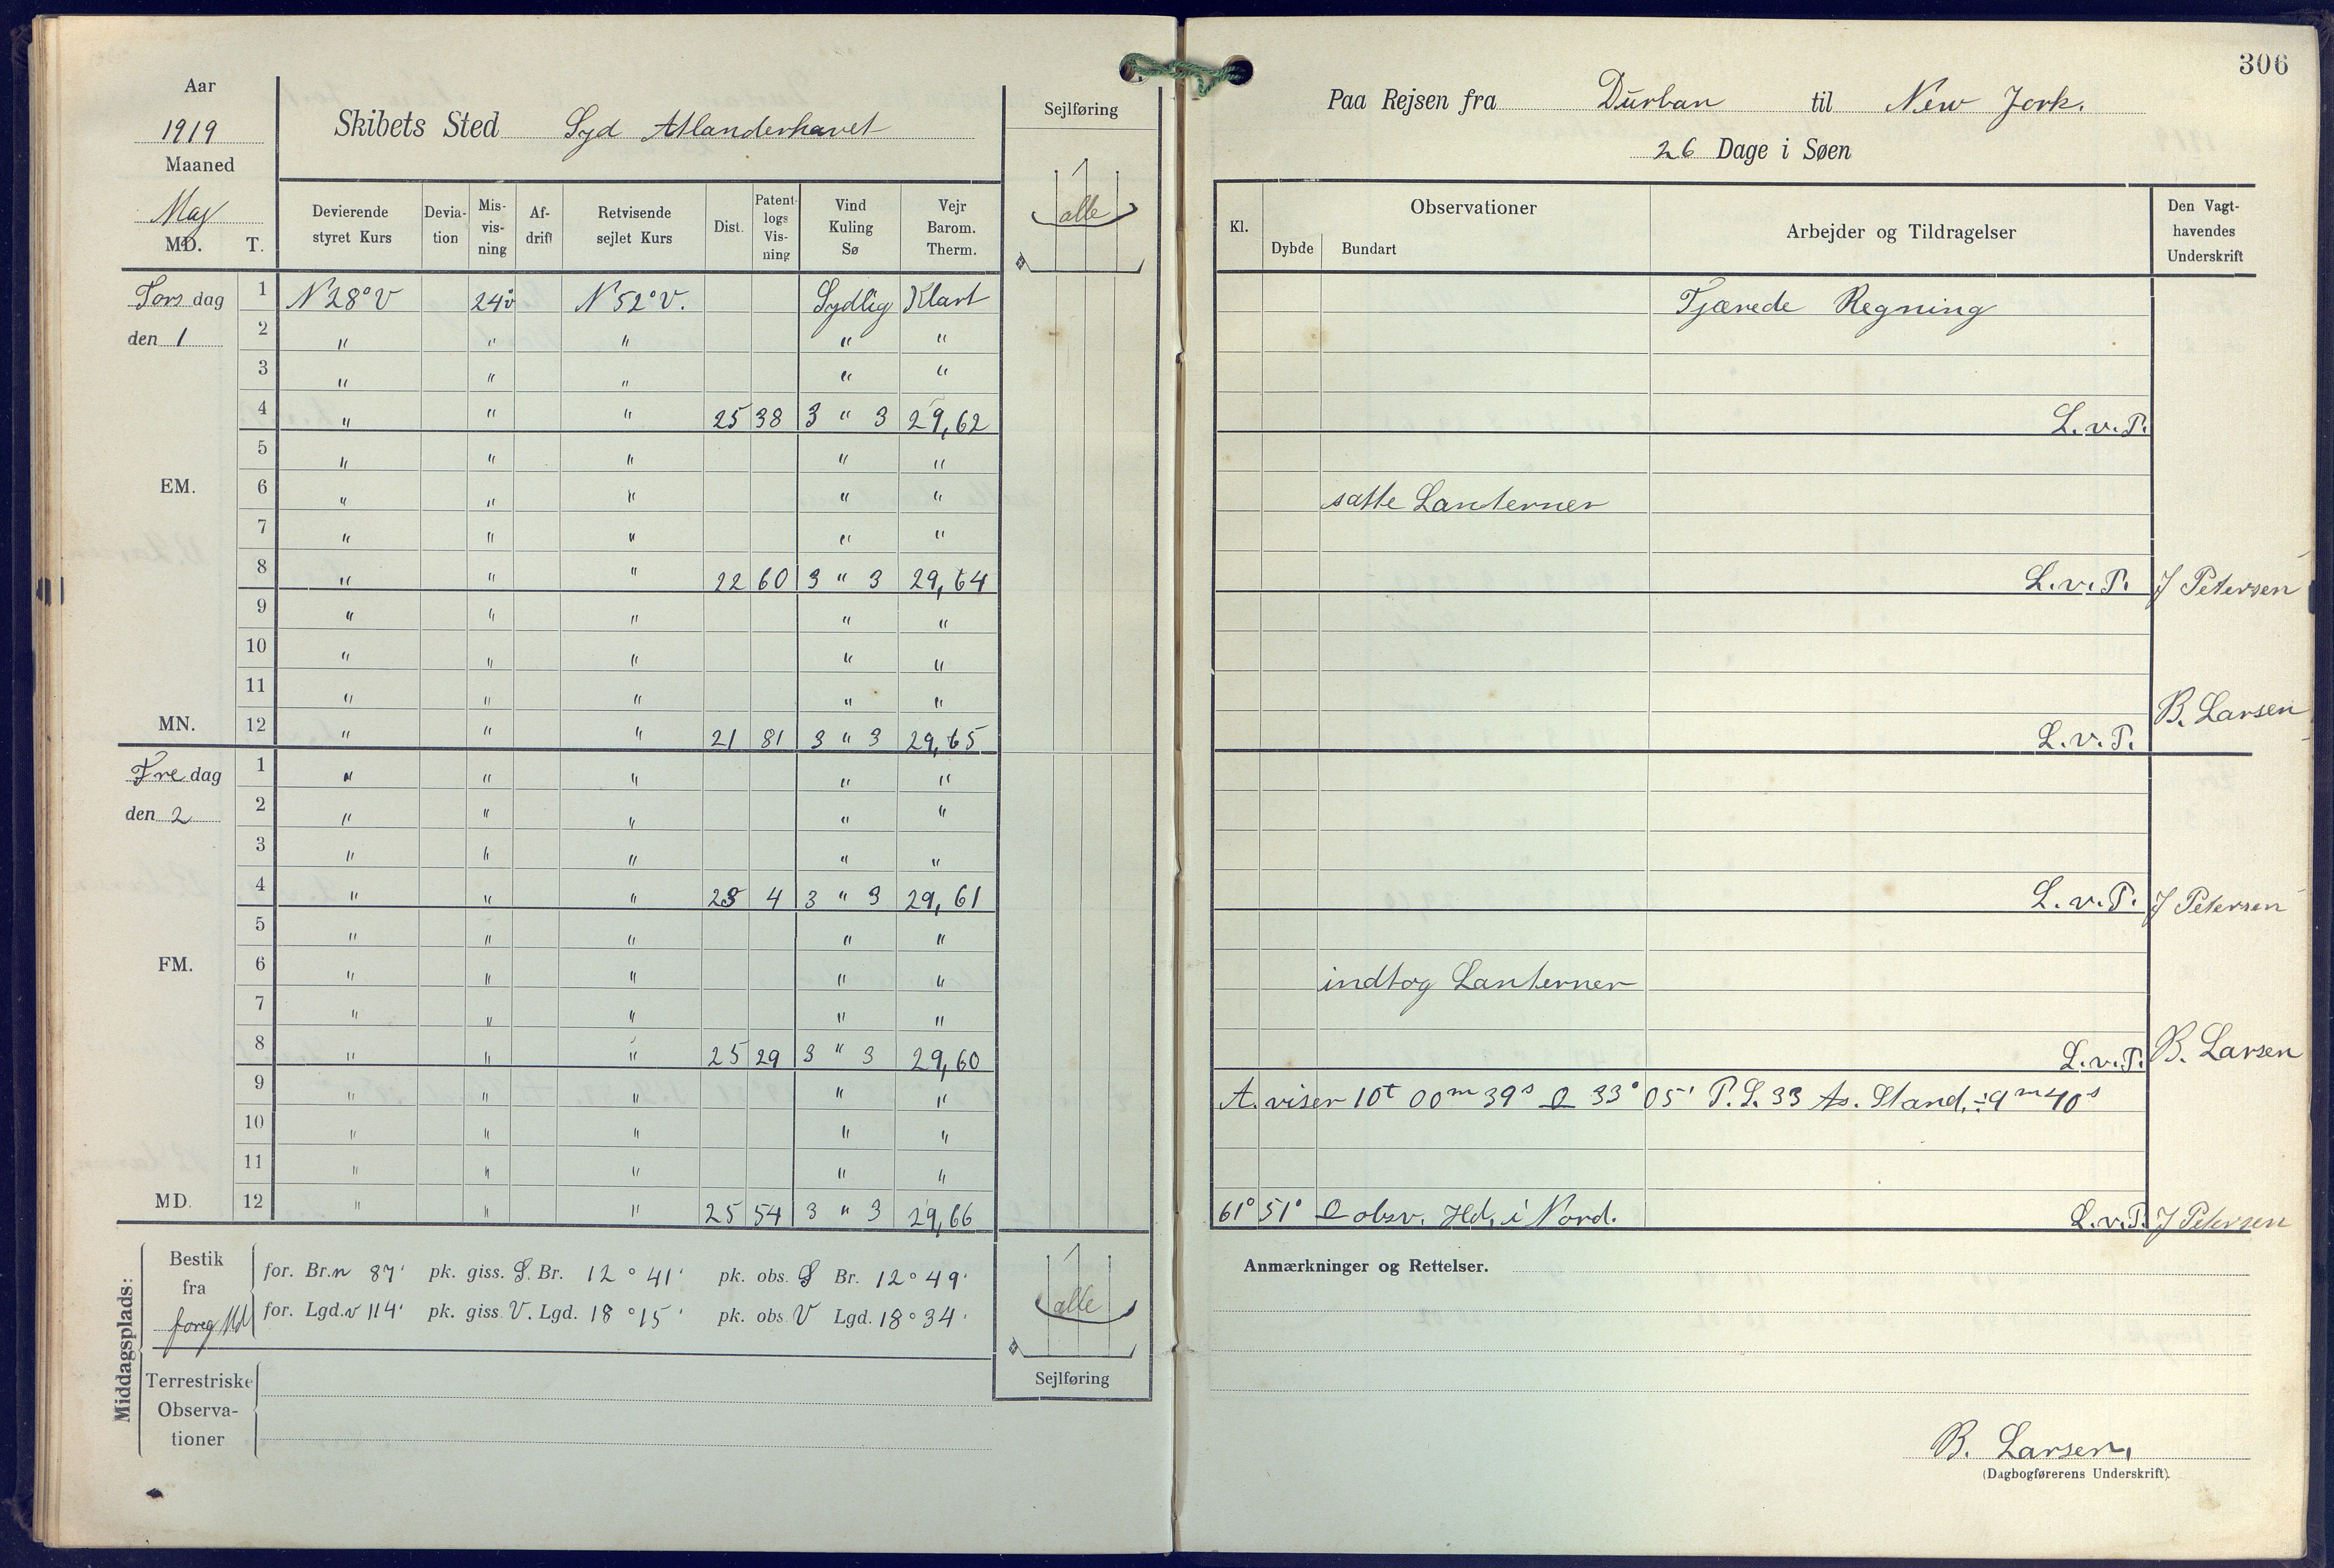 Aar
1919
Maaned
Maj
MD. T.
Skibets Sted Syd Atlanderhavet
Sejlføring
alle
Devierende styret Kurs
Devia- tion
Mis- vis- ning
Af- drift
Retvisende sejlet Kurs
Dist.
Patent- logs Vis- ning
Vind Kuling Sø
Vejr Barom. Therm.
Tors dag 1 N 28° V 24 v N 52° V. Sydlig Klart
den 1 2 " " " " "
3 " " " " "
4 " " " 25 38 3 " 3 29,62
5 " " " " "
EM. 6 " " " " "
7 " " " " "
8 " " " 22 60 3 " 3 29,64
9 " " " " "
10 " " " " "
11 " " " " "
MN. 12 " " " 21 81 3 " 3 29,65
Fre dag 1 " " " " "
den 2 2 " " " " "
3 " " " " "
4 " " " 23 4 3 " 3 29,61
5 " " " " "
FM. 6 " " " " "
7 " " " " "
8 " " " 25 29 3 " 3 29,60
9 " " " " "
10 " " " " "
11 " " " " "
MD. 12 " " " 25 54 3 " 3 29,66
Middagsplads:
Bestik fra foreg Md
for. Br. n 87' pk. giss. S. Br. 12° 41' pk. obs. S Br. 12° 49'
for. Lgd. v 114' pk. giss. V. Lgd. 18° 15' pk. obs. V Lgd. 18° 34'
Terrestriske Observa- tioner
alle
Sejlføring
306
Paa Rejsen fra Durban til New Jork.
26 Dage i Søen
Kl.
Observationer
Dybde Bundart
Arbejder og Tildragelser
Den Vagt- havendes Underskrift
Tjærede Regning
L. v. P.
satte Lanterner
L. v. P. J Petersen
B. Larsen
L. v. P.
L. v. P. J Petersen
indtog Lanterner
L. v. P. B. Larsen
A. viser 10t 00m 39s 33° 05' P. L. 33 As. Stand. ÷ 9m 40s
61° 51° obsv. Hd. i Nord. L. v. P. J Petersen
Anmærkninger og Rettelser.
B. Larsen,
(Dagbogførerens Underskrift).